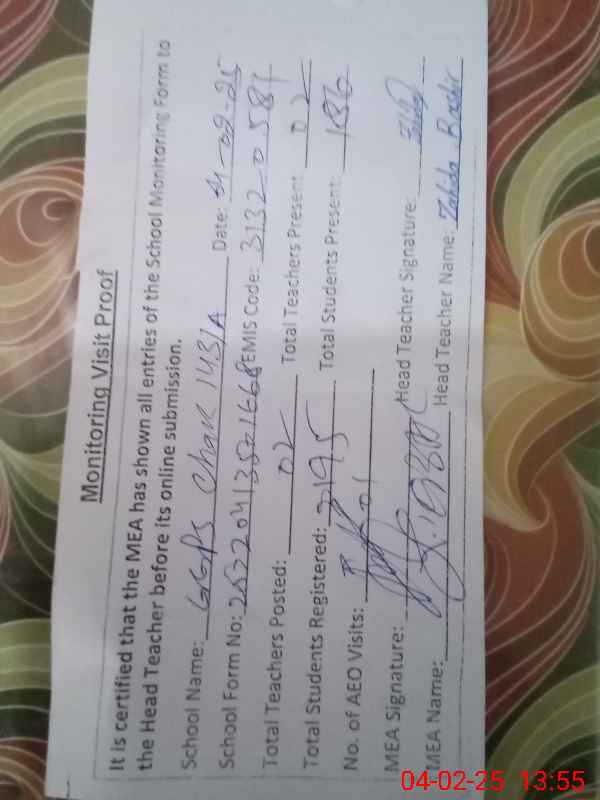 Monitoring Visit Proof
It is certified that the MEA has shown all entries of the School Monitoring Form to
the Head Teacher before its online submission.
School Name: GGPS Chak 143/A Date: 04-02-25
School Form No: EMIS Code: 31320587
Total Teachers Posted: 02 Total Teachers Present: 02
Total Students Registered: 195 Total Students Present: 186
No. of AEO Visits: 01
MEA Signature: Head Teacher Signature:
MEA Name: Head Teacher Name: Zahida Bashir
04-02-25 13:55